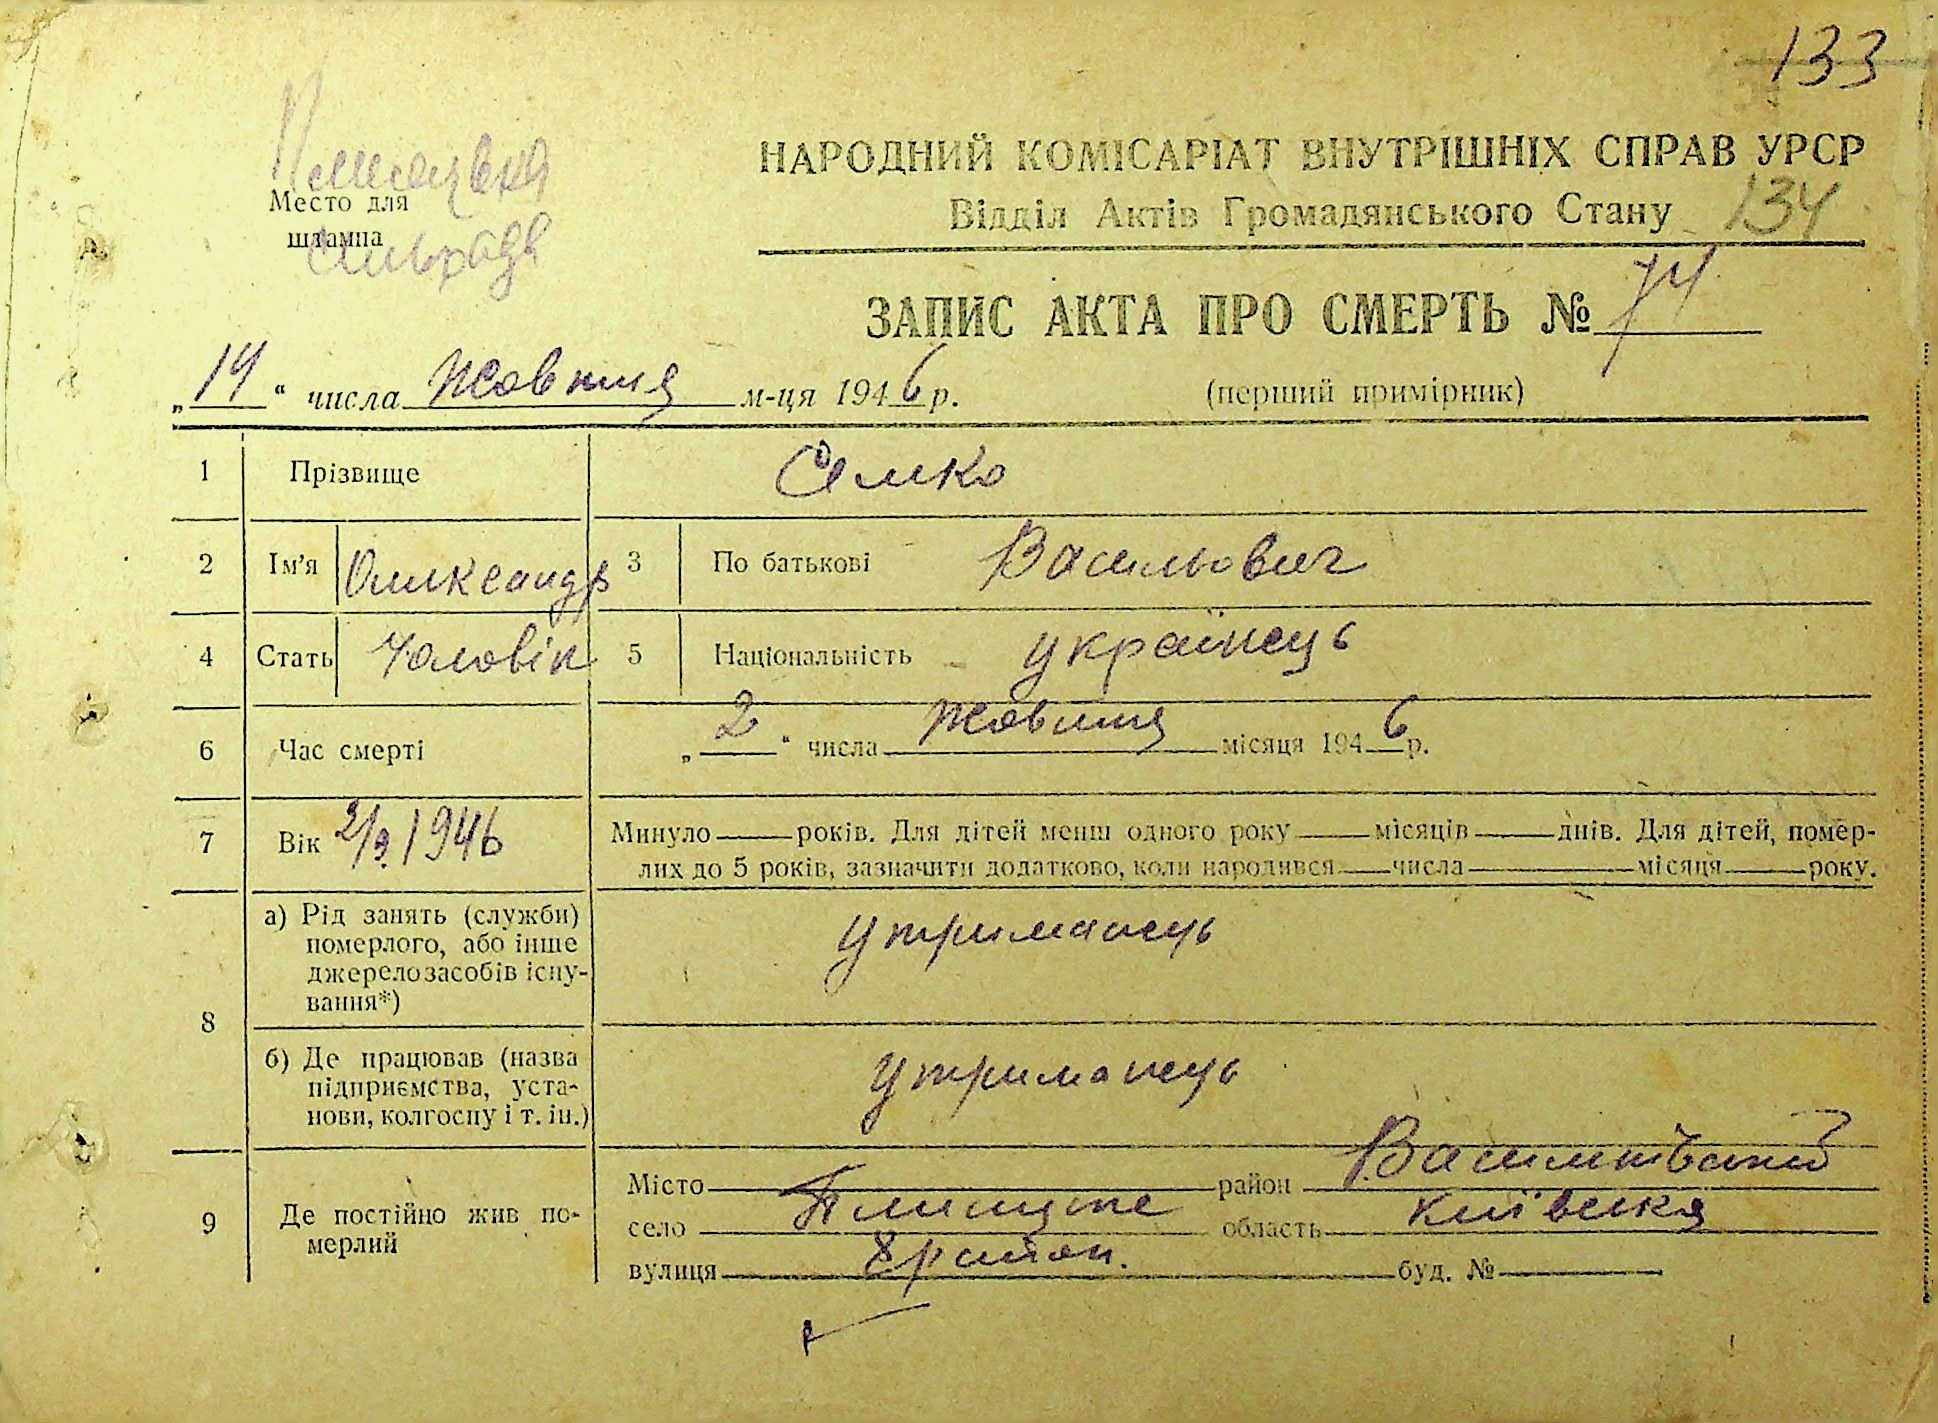 133
НАРОДНИЙ КОМІСАРІАТ ВНУТРІШНІХ СПРАВ УРСР
Відділ Актів Громадянського Стану 134
Место для
штампа
сільрада
ЗАПИС АКТА ПРО СМЕРТЬ № 74
„14“ числа Жовтня м-ця 1946 р. (перший примірник)
1 Прізвище Семко
2 Ім'я Олександр 3 По батькові Васильович
4 Стать Чоловік 5 Національність українець
6 Час смерті „2“ числа Жовтня місяця 1946 р.
7 Вік 2/9 1946 Минуло років. Для дітей менш одного року місяців днів. Для дітей, помер-
лих до 5 років, зазначити додатково, коли народився числа місяця року.
8 а) Рід занять (служби)
померлого, або інше
джерело засобів існу-
вання*)
утриманець
б) Де працював (назва
підприємства, уста-
нови, колгоспу і т. ін.)
утриманець
9 Де постійно жив по-
мерлий
Місто район Васильківський
село область Київська
вулиця район. буд. №